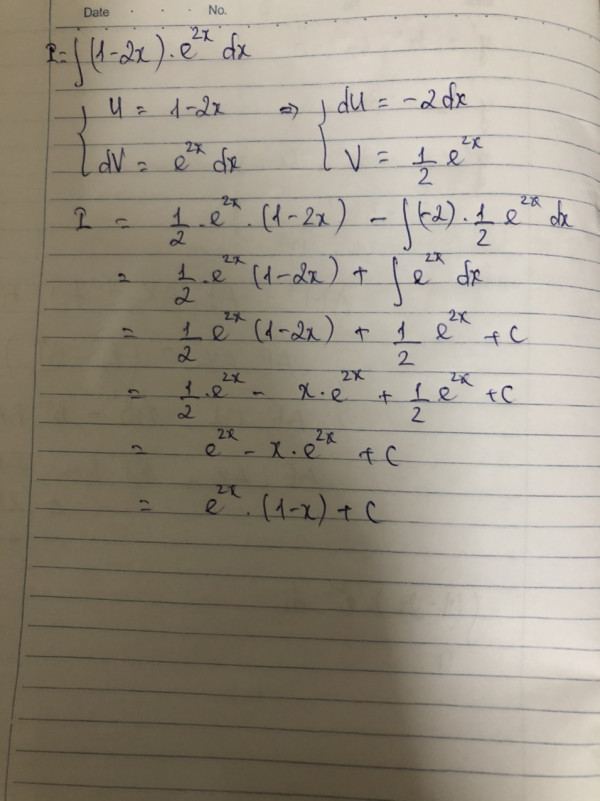 Date . . . No.
I = ∫(1-2x).e^{2x} dx
{ U = 1-2x => { dU = -2dx
dV = e^{2x} dx V = \frac{1}{2} e^{2x}
I = \frac{1}{2}.e^{2x}.(1-2x) - ∫(-2).\frac{1}{2} e^{2x} dx
= \frac{1}{2}.e^{2x}(1-2x) + ∫ e^{2x} dx
= \frac{1}{2} e^{2x}(1-2x) + \frac{1}{2} e^{2x} + C
= \frac{1}{2}.e^{2x} - x.e^{2x} + \frac{1}{2} e^{2x} + C
= e^{2x} - x.e^{2x} + C
= e^{2x}.(1-x) + C